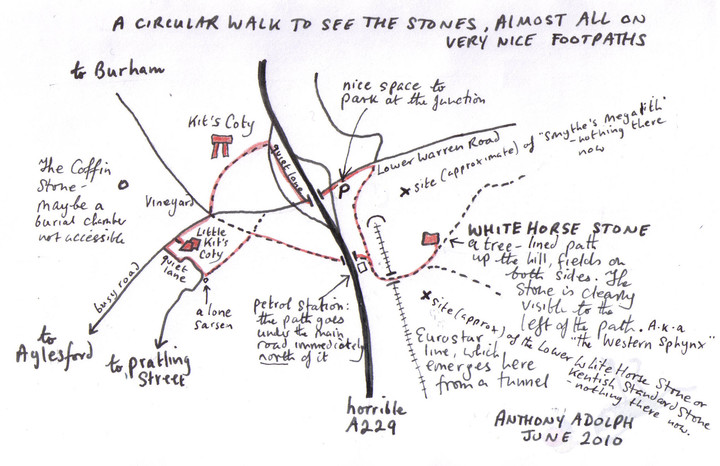 A CIRCULAR WALK TO SEE THE STONES, ALMOST ALL ON
VERY NICE FOOTPATHS
to Burham
nice space to
park at the junction
Kit's Coty
quiet lane
Lower Warren Road
P
x site (approximate) of "Smythe's Megalith"
- nothing there
now
The Coffin
Stone -
maybe a
burial chamber
not accessible
Vineyard
Little
Kit's
Coty
quiet
lane
busy road
a lone
sarsen
to
Aylesford
to Pratling
Street
petrol station:
the path goes
under the main
road immediately
north of it
WHITE HORSE STONE
a tree-lined path
up the hill, fields on
both sides. The
Stone is clearly
visible to the
left of the path. A.k.a
"the Western Sphynx"
x site (approx) of the Lower White Horse Stone or
Kentish Standard Stone
- nothing there now.
Eurostar
line, which
emerges here
from a tunnel
horrible
A229
ANTHONY ADOLPH
JUNE 2010